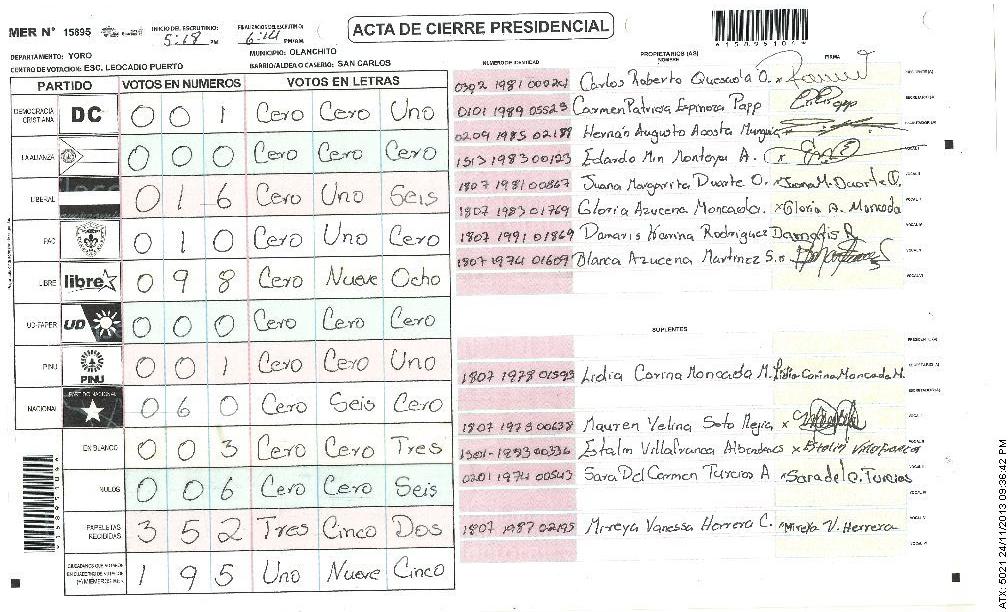 MER N° 15895
INICIO DEL ESCRUTINIO: 5:18 PM
FINALIZACION DEL ESCRUTINIO: 6:14 PM/AM
ACTA DE CIERRE PRESIDENCIAL
DEPARTAMENTO: YORO
MUNICIPIO: OLANCHITO
CENTRO DE VOTACION: ESC. LEOCADIO PUERTO
BARRIO/ALDEA O CASERIO: SAN CARLOS
PARTIDO VOTOS EN NUMEROS VOTOS EN LETRAS
DEMOCRACIA CRISTIANA DC 0 0 1 Cero Cero Uno
FAALIANZA 0 0 0 Cero Cero Cero
LIBERAL 0 1 6 Cero Uno Seis
PAC 0 1 0 Cero Uno Cero
LIBRE libre 0 9 8 Cero Nueve Ocho
UD-FAPER UD 0 0 0 Cero Cero Cero
PINU PINU 0 0 1 Cero Cero Uno
NACIONAL PARTIDO NACIONAL 0 6 0 Cero Seis Cero
EN BLANCO 0 0 3 Cero Cero Tres
NULOS 0 0 6 Cero Cero Seis
PAPELETAS RECIBIDAS 3 5 2 Tres Cinco Dos
1 9 5 Uno Nueve Cinco
PROPIETARIOS (AS)
NUMERO DE IDENTIDAD NOMBRE FIRMA
Carlos Roberto Quesada O.
0101 1989 05523 Carmen Patricia Espinoza Papp
0209 1985 02188 Hernán Augusto Acosta Munguia
1513 1983 00123 Edardo Min Montoya A.
1807 1981 00867 Juana Margarita Duarte O. x Juana M. Duarte O.
1807 1983 01769 Gloria Azucena Moncada. x Gloria A. Moncada
1807 1991 01869 Damaris Karina Rodriguez Damaris R
1807 1974 01609 Blanca Azucena Martinez S.
SUPLENTES
1807 1978 01593 Lidia Corina Moncada M. Lidia Corina Moncada M.
1807 1973 00638 Mauren Velina Soto Mejia x
Estalin Villafranca
0201 1974 00543 Sara Del Carmen Turcios A x Sara del C. Turcios
1807 1987 02195 Mireya Vanessa Herrera C. x Mireya V. Herrera
ATX: 5021 24/11/2013 09:36:42 PM